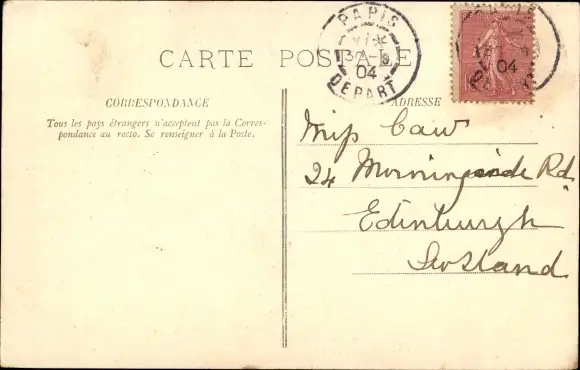 CARTE POSTALE
PARIS
04
DEPART
PARIS
04
CORRESPONDANCE
Tous les pays étrangers n'acceptent pas la Corres-
pondance au recto. Se renseigner à la Poste.
ADRESSE
Miss Caw
24 Morningside Rd.
Edinburgh
Scotland